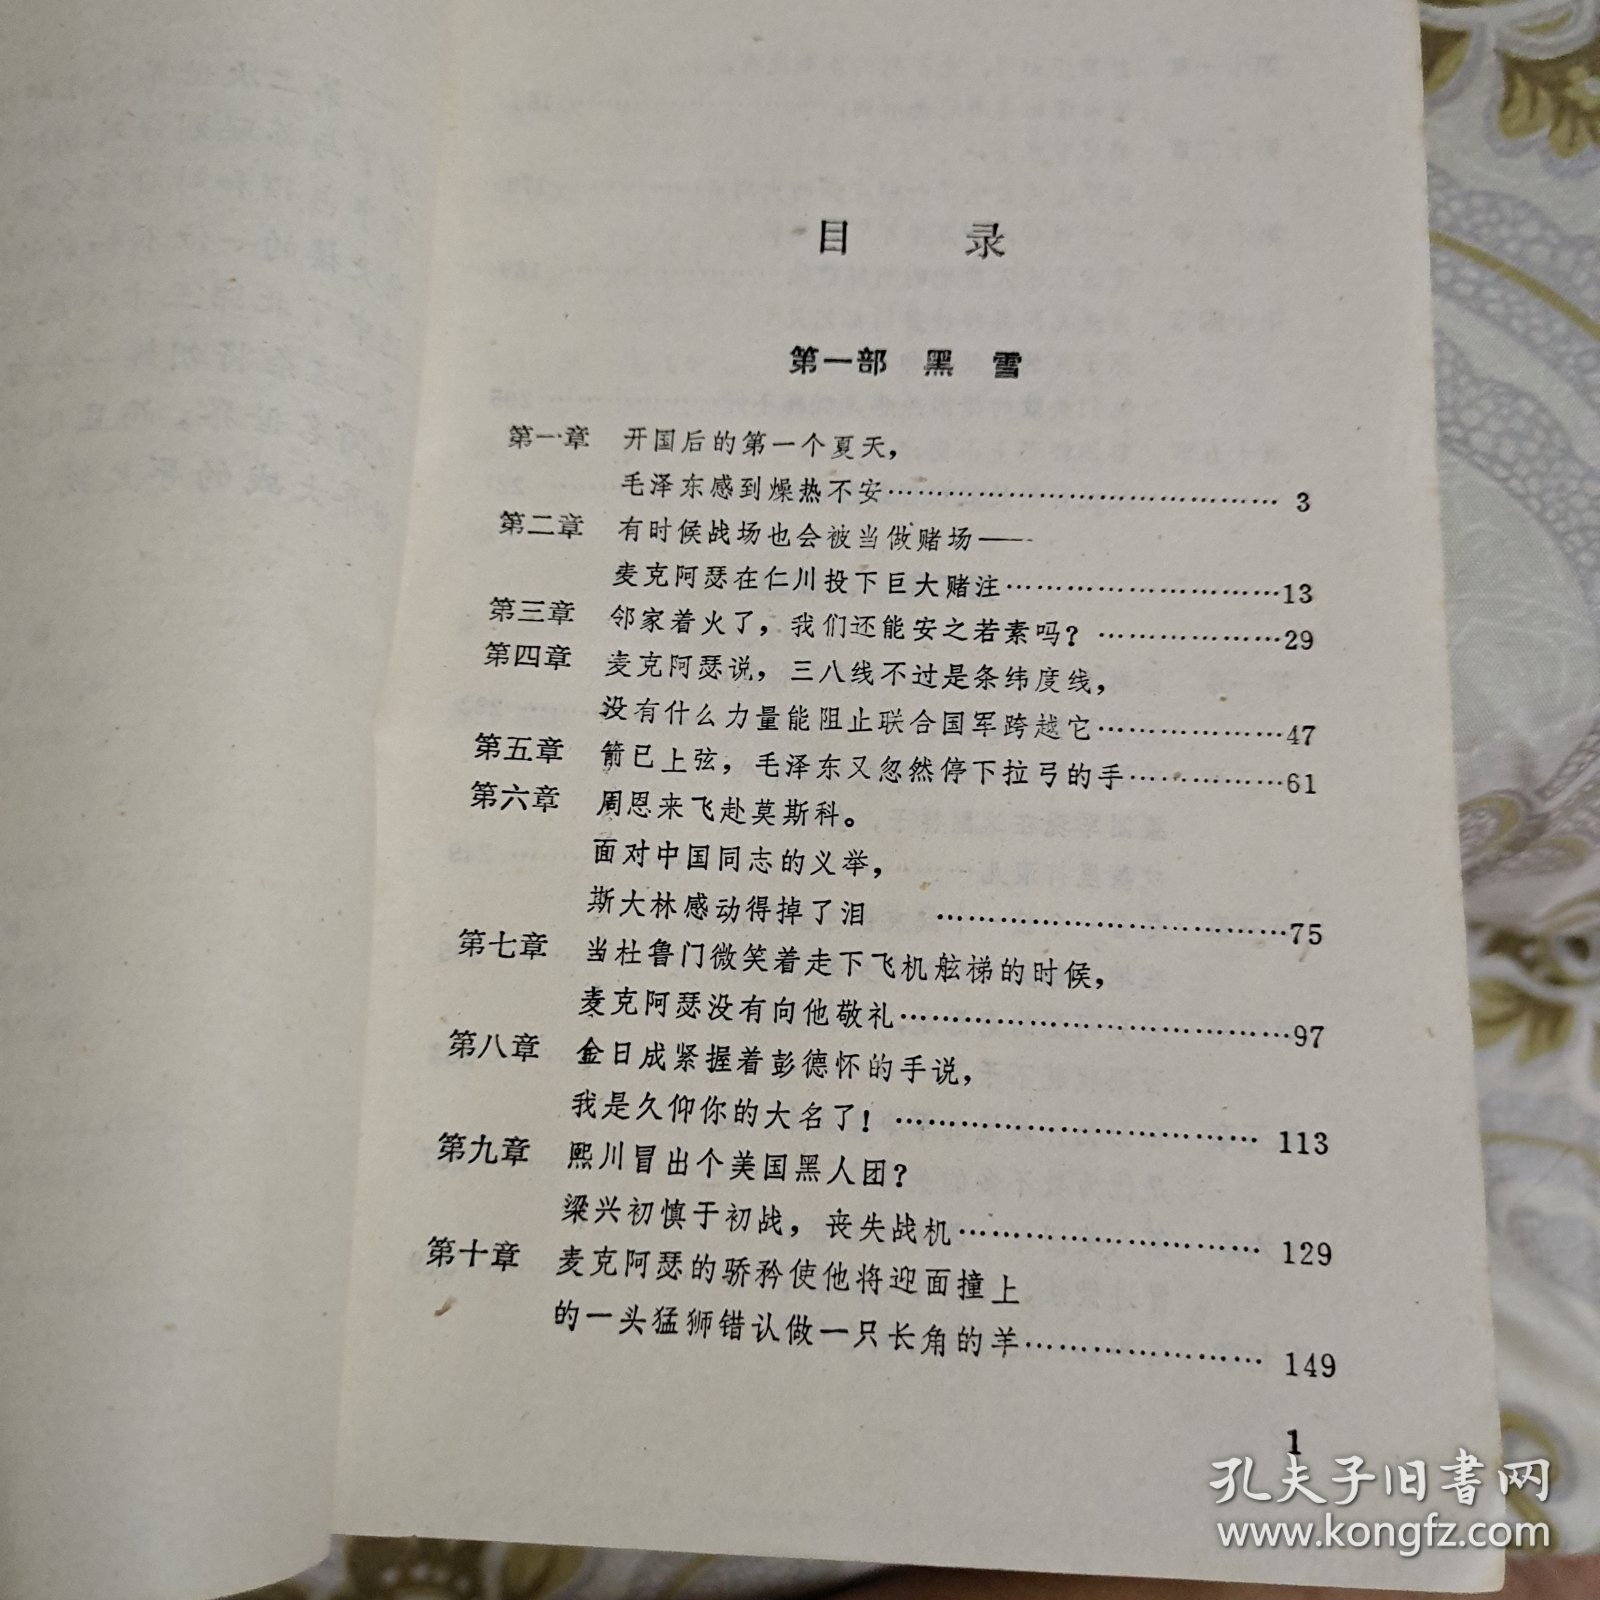 目 录
第一部 黑 雪
第一章 开国后的第一个夏天，
毛泽东感到燥热不安…………………………………… 3
第二章 有时候战场也会被当做赌场——
麦克阿瑟在仁川投下巨大赌注………………………13
第三章 邻家着火了，我们还能安之若素吗？………………29
第四章 麦克阿瑟说，三八线不过是条纬度线，
没有什么力量能阻止联合国军跨越它………………47
第五章 箭已上弦，毛泽东又忽然停下拉弓的手……………61
第六章 周恩来飞赴莫斯科。
面对中国同志的义举，
斯大林感动得掉了泪 ………………………………75
第七章 当杜鲁门微笑着走下飞机舷梯的时候，
麦克阿瑟没有向他敬礼…………………………………97
第八章 金日成紧握着彭德怀的手说，
我是久仰你的大名了！……………………………… 113
第九章 熙川冒出个美国黑人团？
梁兴初慎于初战，丧失战机………………………… 129
第十章 麦克阿瑟的骄矜使他将迎面撞上
的一头猛狮错认做一只长角的羊…………………… 149
1
孔夫子旧书网
www.kongfz.com